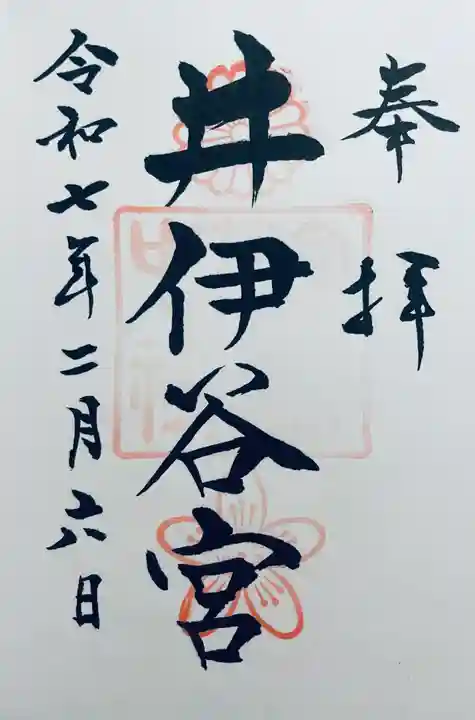 奉拝
井伊谷宮
令和七年二月六日